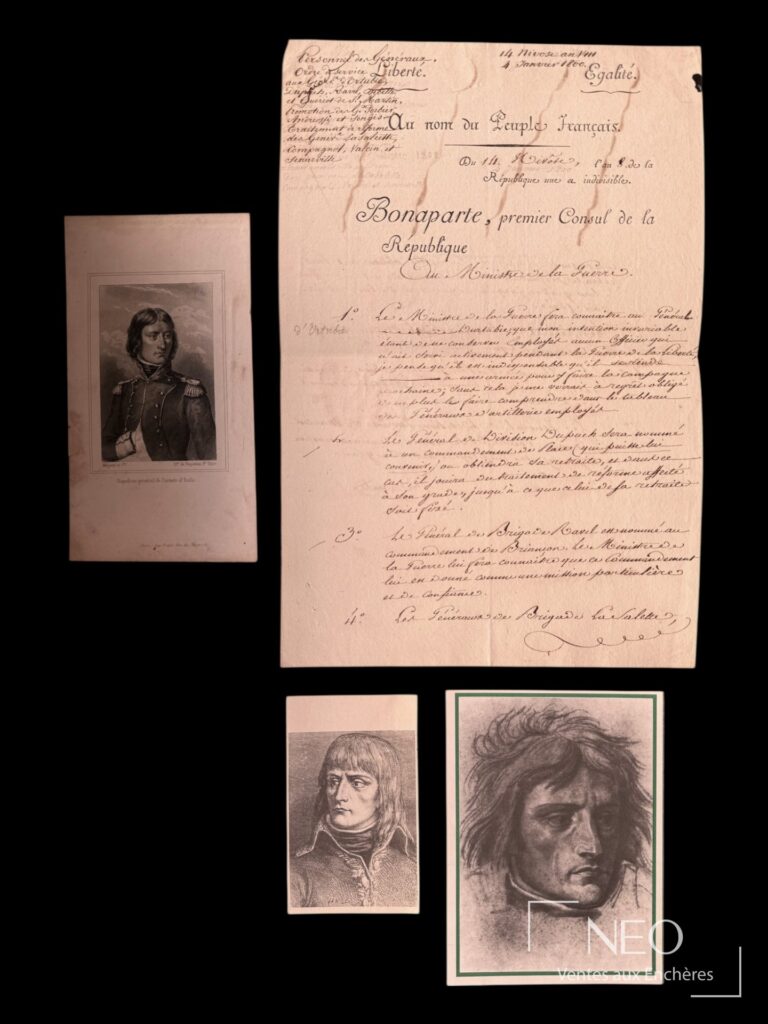 Personnel des Généraux
Ordre de service
aux Généraux
Dupuch, Ravel,
et Gueriot de St Martin,
Promotion des Gx Sorbier
Andreossi et Songis
traitement de réforme
des Génér. La Salette,
Compagnol, Valvin et
Senneville
14 Nivose an VIII
4 Janvier 1800.
Liberté. Égalité.
Au nom du Peuple Français.
Du 14 Nivôse, l'an 8 de la
République une et indivisible.
Bonaparte, premier Consul de la
République
Au Ministre de la Guerre.
1º. Le Ministre de la Guerre fera connaître au Général
Durtubie, que mon intention invariable
étant de ne conserver employés aucun Officier qui
n'ait servi activement pendant la Guerre de la Liberté,
je pense qu'il est indispensable qu'il se rende
à une armée pour y faire la campagne
prochaine; sans cela je me verrais à regret obligé
de ne plus le faire comprendre dans le tableau
des Généraux d'artillerie employés
Le Général de Division Dupuch sera nommé
à un commandement de Place qui puisse lui
convenir, ou obtiendra sa retraite, et dans ce
cas, il jouira du traitement de réforme affecté
à son grade, jusqu'à ce que celui de sa retraite
soit fixé.
3º. Le Général de Brigade Ravel est nommé au
commandement de Briançon. Le Ministre de
la Guerre lui fera connaître que ce Commandement
lui est donné comme une mission particulière
et de confiance.
4º. Les Généraux de Brigade La Salette,
Napoléon général de l'armée d'Italie
NEO
Ventes aux Enchères